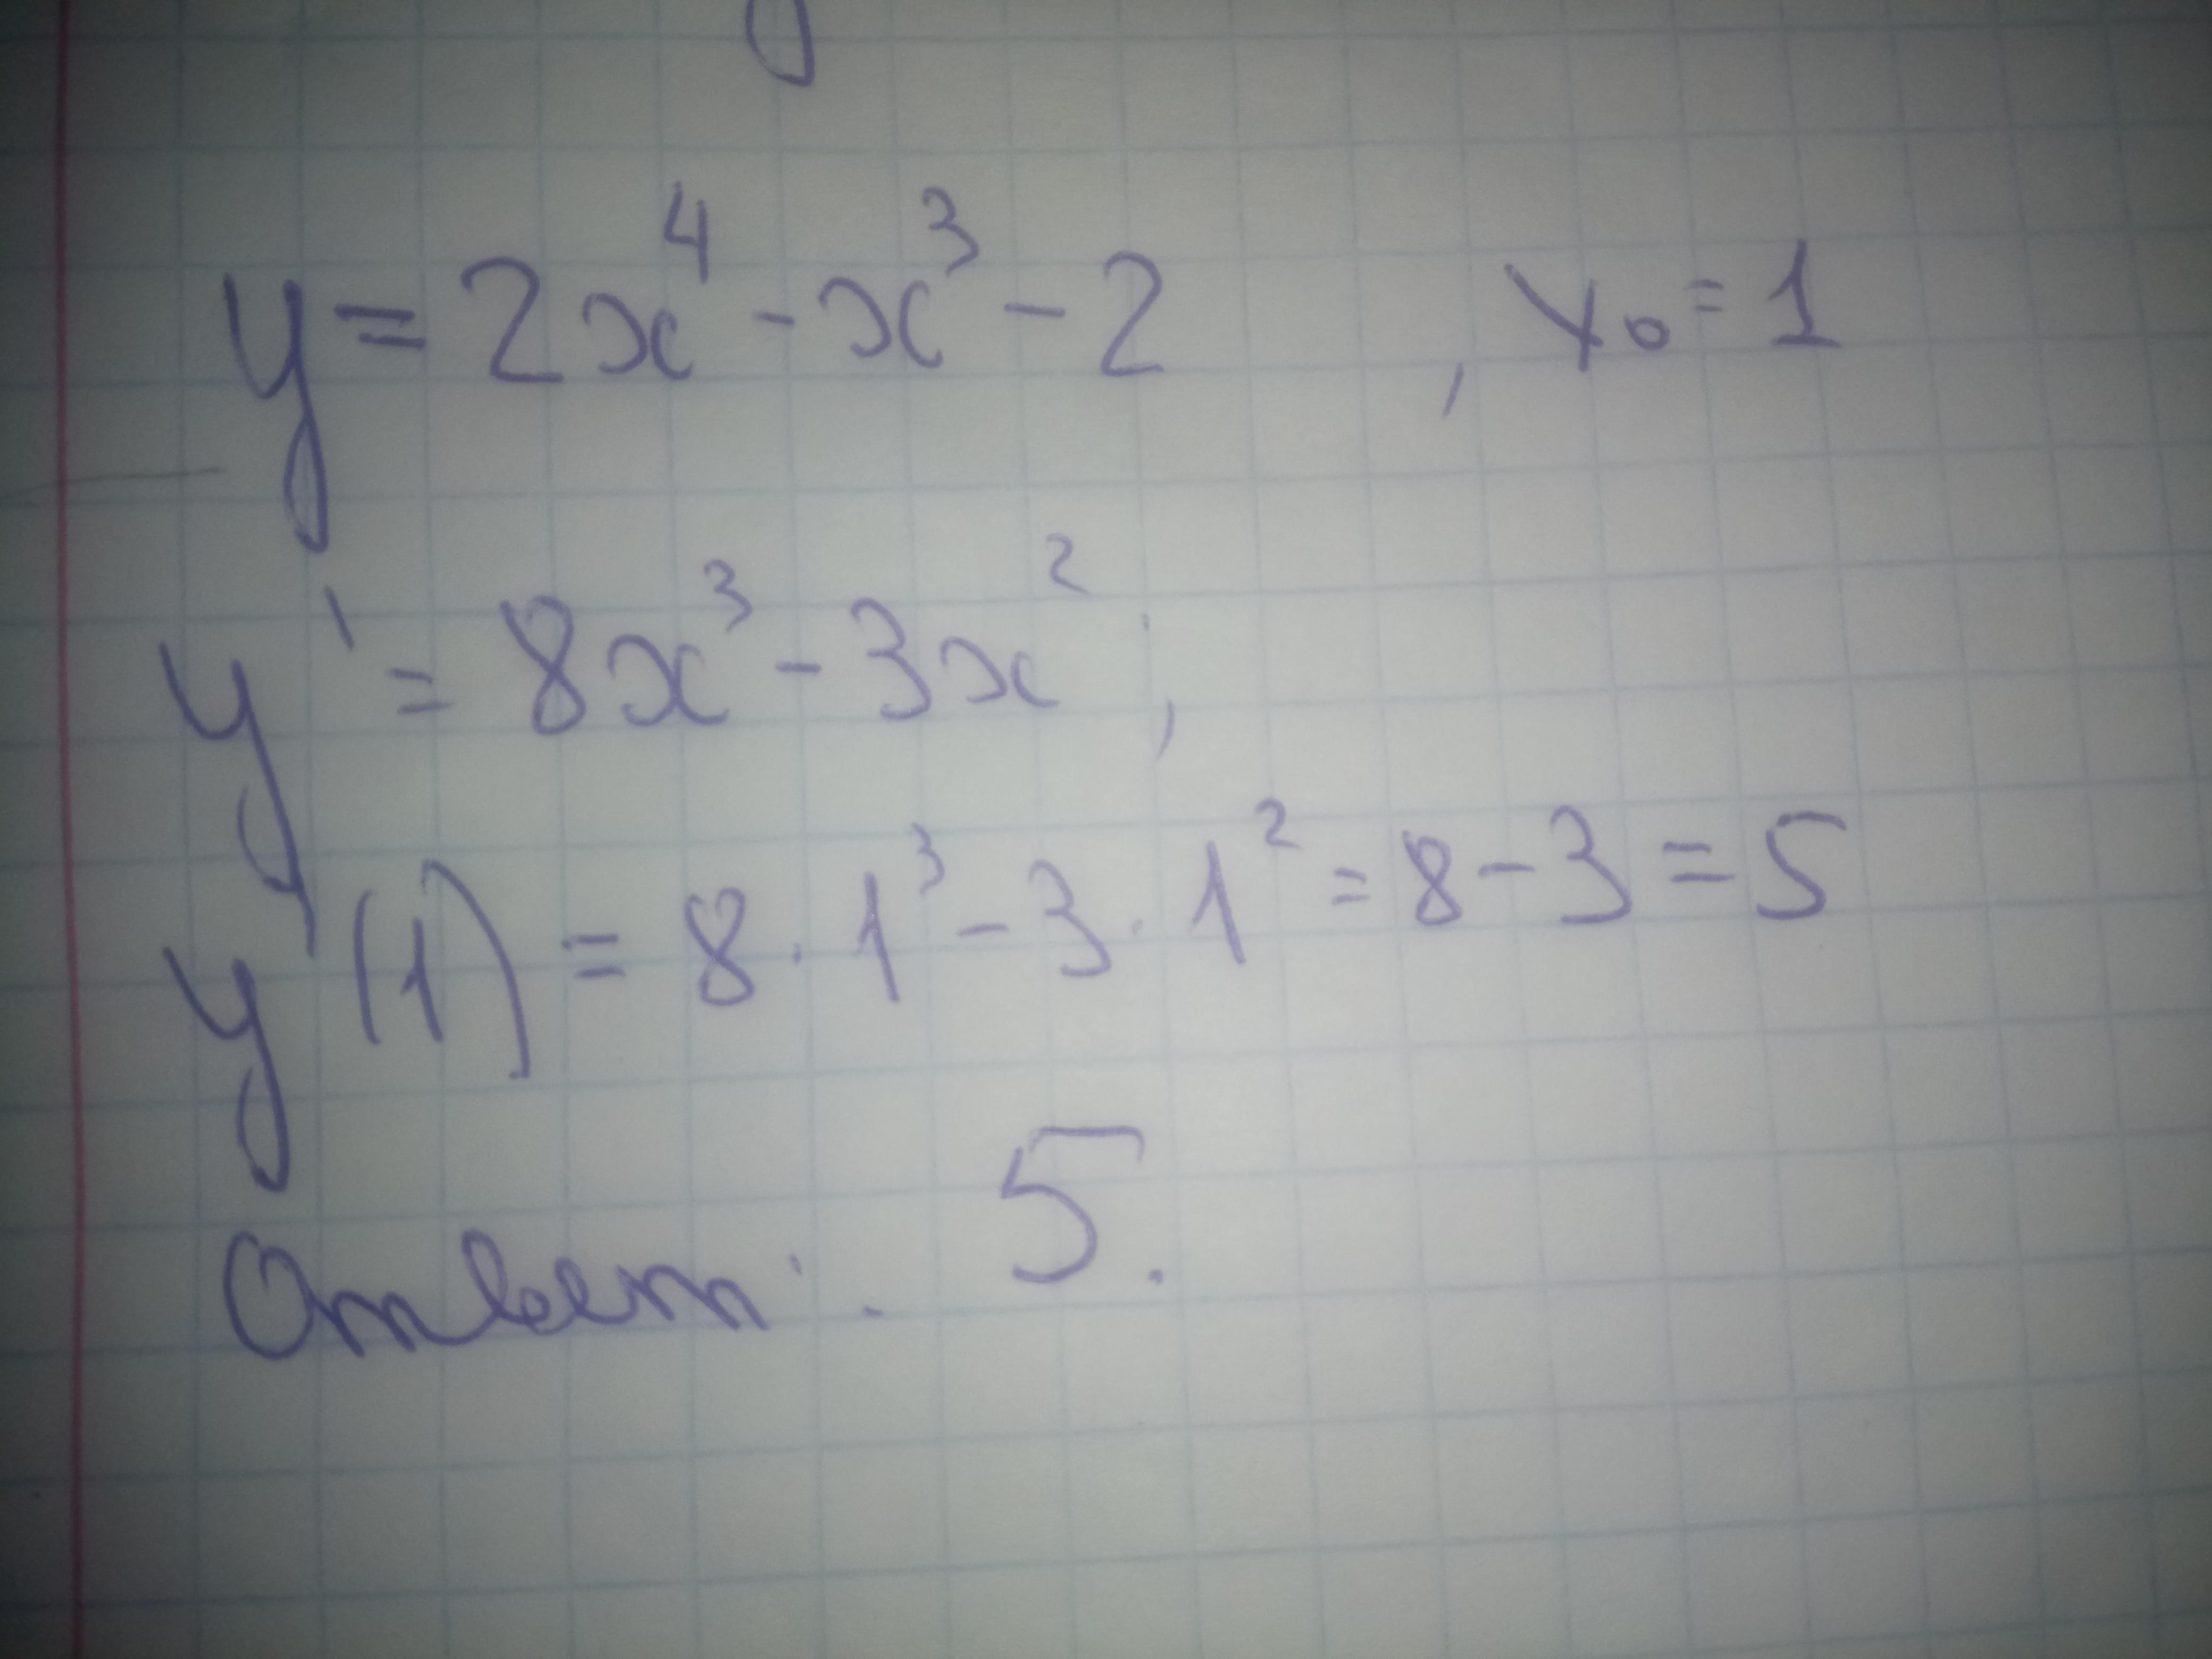 y = 2x⁴ - x³ - 2 , x₀ = 1
y' = 8x³ - 3x² ;
y'(1) = 8 · 1³ - 3 · 1² = 8 - 3 = 5
Ответ: 5.